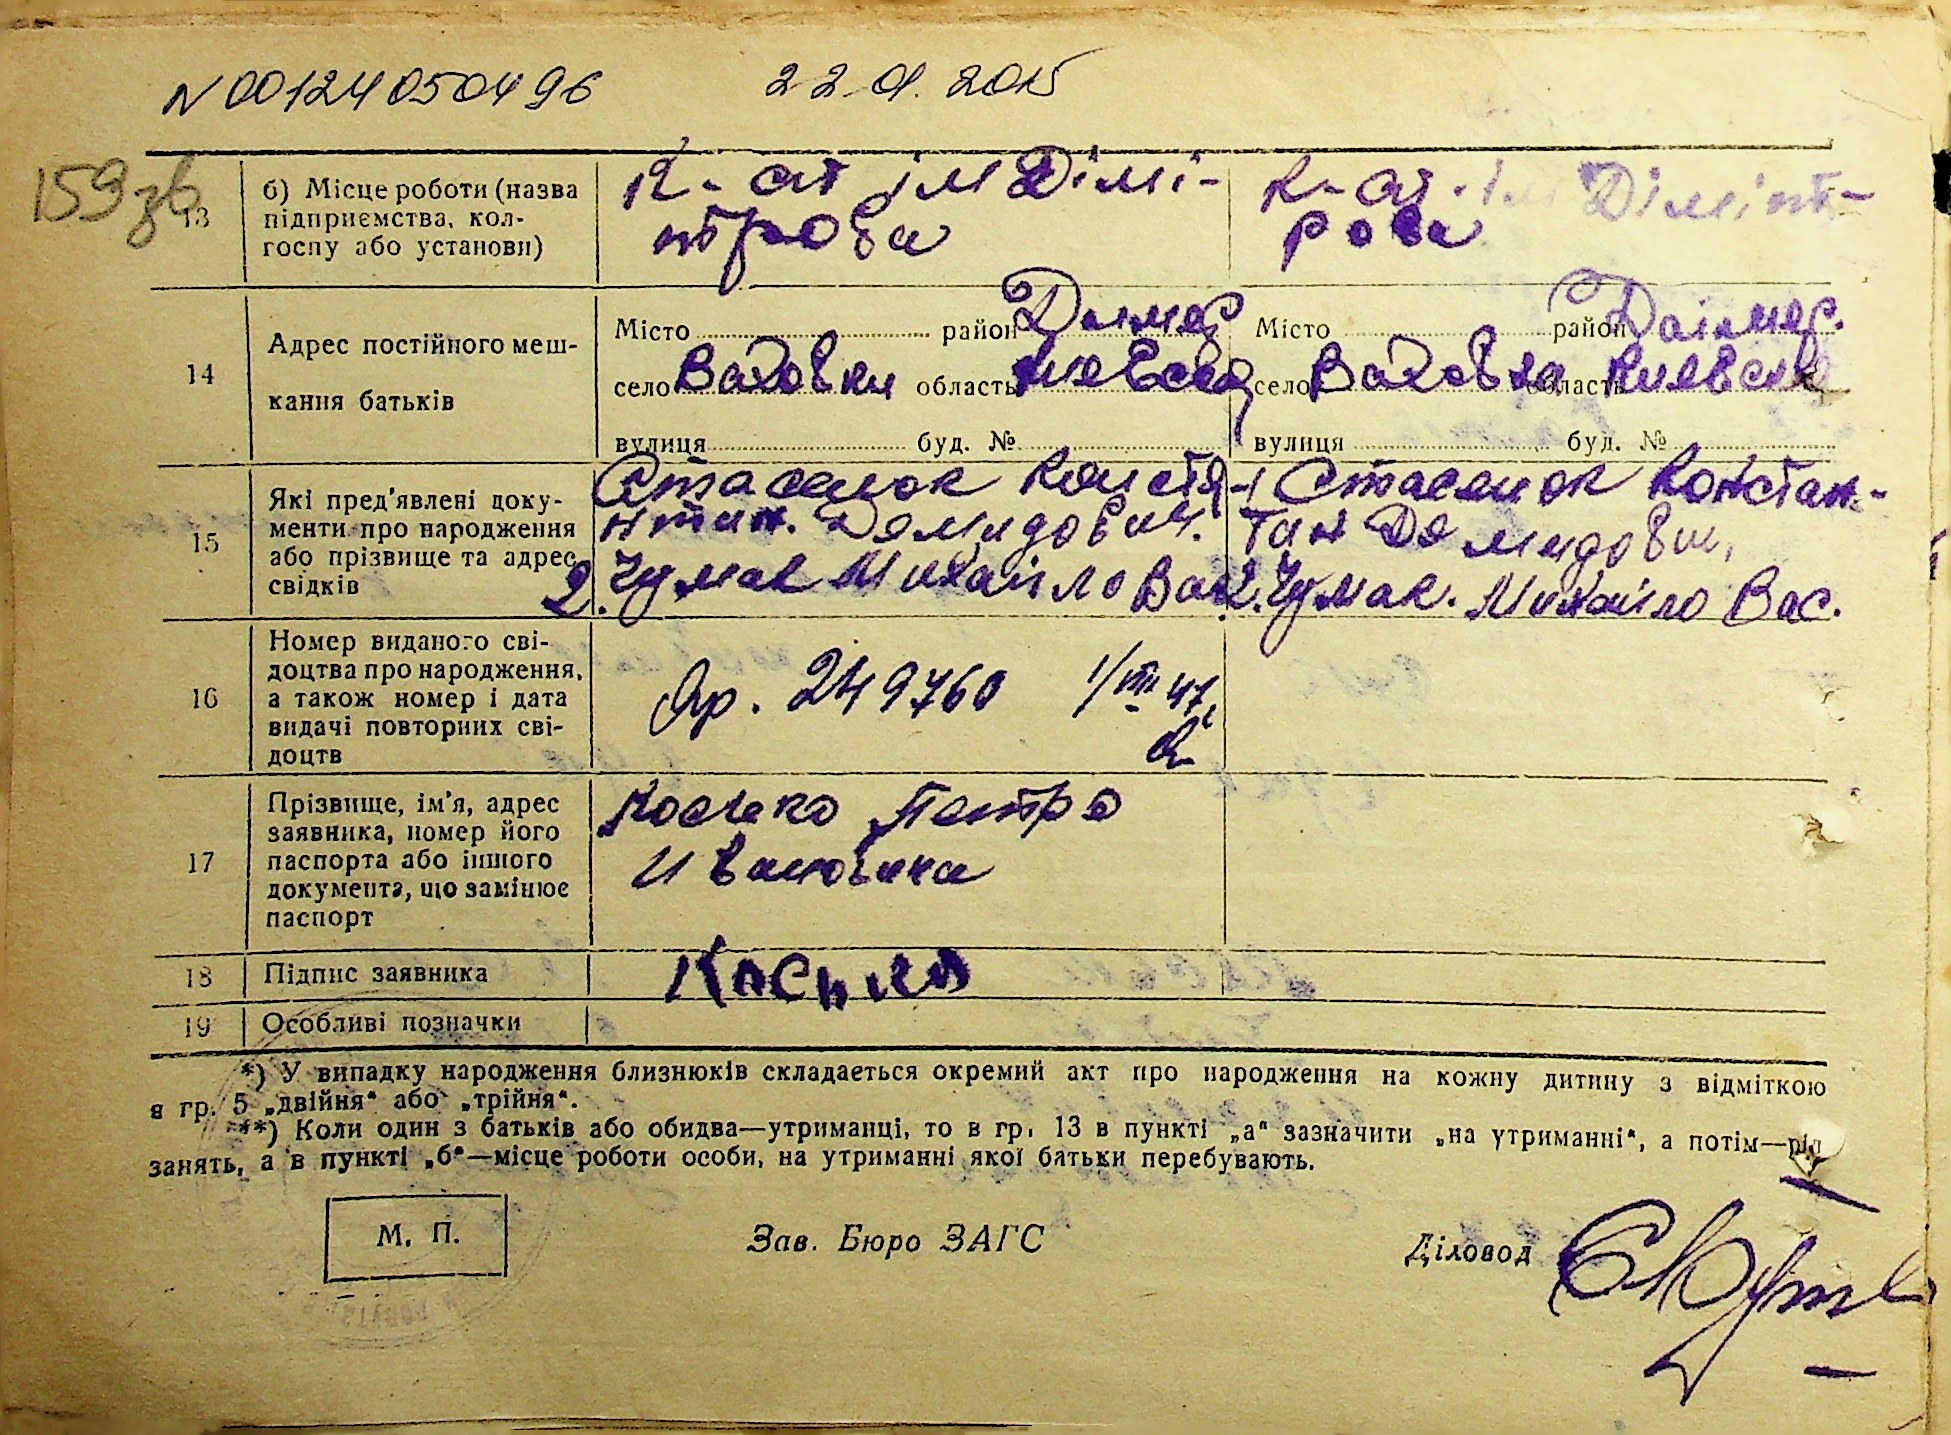 N 00124050496 22.01.2015
159 зв
13 б) Місце роботи (назва підприємства, колгоспу або установи)
К-ст ім Дімі-
трова
К-ст. ім Дiмiт-
рова
14 Адрес постійного меш-
кання батьків
Місто район Димер
село Ваховки область Киевска
вулиця буд. №
Місто район Даімер.
село Вахов область Киевска
вулиця буд. №
15 Які пред'явлені доку-
менти про народження
або прізвище та адрес
свідків
Стасенок Констя-
нтин. Демидович.
2. Чумак Михайло Вас.
Стасенок Констан-
тин Демидович,
2. Чумак. Михайло Вас.
16 Номер виданого сві-
доцтва про народження,
а також номер і дата
видачі повторних сві-
доцтв
249760 1/VIII 47
17 Прізвище, ім'я, адрес
заявника, номер його
паспорта або іншого
документа, що замінює
паспорт
Косяко Петро
Ивановича
18 Підпис заявника
19 Особливі позначки
*) У випадку народження близнюків складається окремий акт про народження на кожну дитину з відміткою
в гр. 5 „двійня“ або „трійня“.
**) Коли один з батьків або обидва—утриманці, то в гр. 13 в пункті „а“ зазначити „на утриманні“, а потім—рід
занять, а в пункті „б“—місце роботи особи, на утриманні якої батьки перебувають.
М. П. Зав. Бюро ЗАГС Діловод